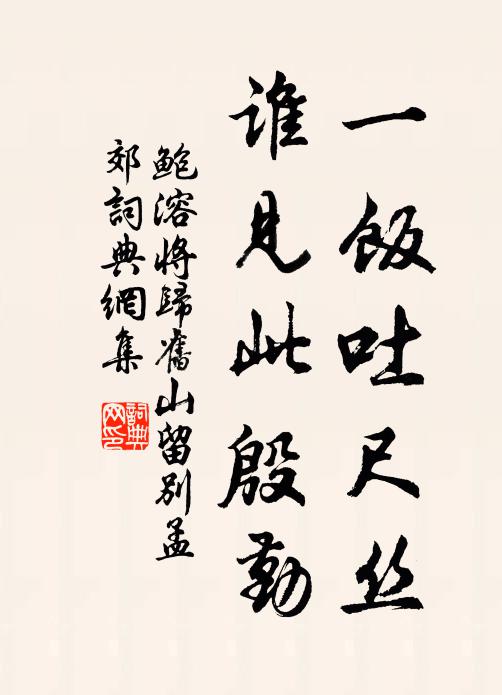 一飯吐尺丝
誰見此殷勤
鲍溶將歸舊山留别孟
郊詞典網集
詞典
网印